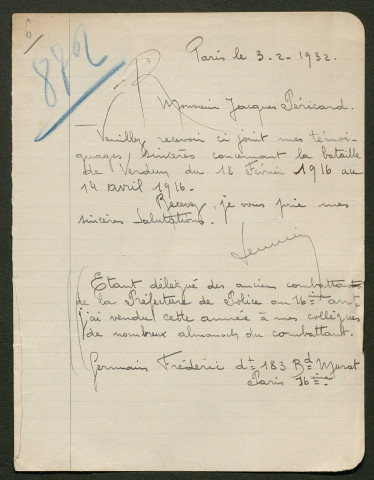 6
8702
R
Paris le 3-2-1932.
Monsieur Jacques Péricard.
Veuillez recevoir ci joint mes témoi-
gnages sincères concernant la bataille
de Verdun du 18 Février 1916 au
14 avril 1916.
Recevez, je vous prie mes
sincères salutations.
Germain
Etant délégué des anciens combattants
de la Préfecture de Police au 16ème arrt
j'ai vendu cette année à mes collègues
de nombreux almanachs du combattant.
Germain Frédéric dt 183 Bd Murat
Paris 16ème